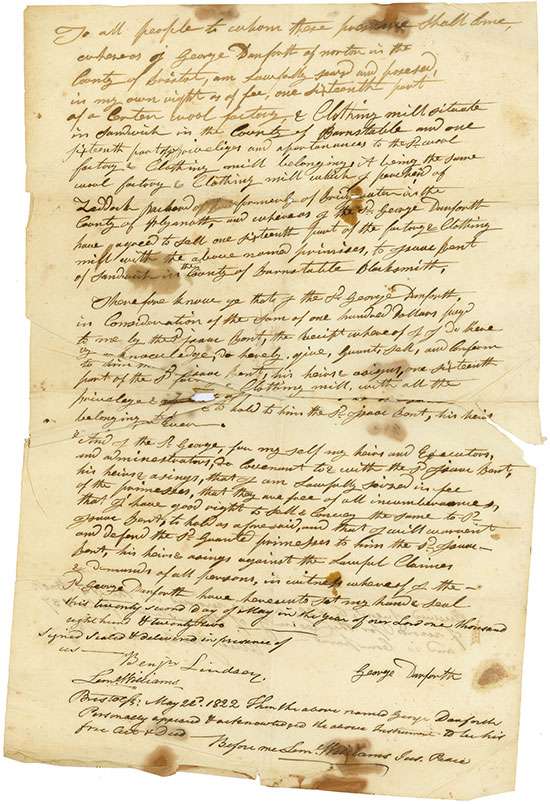 To all people to whom these presents shall Come,
whereas I George Danforth of norton in the
County of Bristol, am lawfully seasd and posesed,
in my own right as of fee, one sixteenth part
of a Certen wool factory, & Clothing mill situate
in Sandwich in the County of Barnstable and one
sixteenth part of priveliges and aportanances to the Sd. wool
factory & Clothing mill belonging, it being the same
wool factory & Clothing mill which I purchesed of
formerly of in the
County of and whereas I the Sd. George Danforth
have agreed to sell one sixteenth part of the factory & Clothing
mill with the above named primises, to Isaac Bent
of Sandwich in the County of Barnstable Blacksmith,
Therefore know ye that I the Sd. George Danforth,
in Consideration of the Sum of one hundred Dollars payd
to me by the Sd. Isaac Bent, the receipt where of I do here
by acknowledge, do hereby give, Grant, Sell, and Conform
to him the Sd. Isaac Bent, his heirs & asigns, one sixteenth
part of the Clothing mill, with all the
privelege &
belonging to hold to him the Sd. Isaac Bent, his heirs
& And I the Sd. George, for my self my heirs and Executors,
and administrators, do Covenant to & with the Sd. Isaac Bent,
his heirs & asings, that I am lawfully seized in fee
of the primesses, that they are free of all incumberances,
that I have good right to Sell & Convey the same to Sd.
Isaac Bent, to hold as afore said, and that I will warrent
and defend the Sd. Granted primesses to him the Sd. Isaac
Bent, his heirs & asings against the Lawful Claimes
& Demands of all persons, in witness whereof I the
Sd. George Danforth have hereunto set my hand & seal
this twenty second day of May in the year of our Lord one thousand
eight hund & twenty two
Signed Sealed & delivered in presence of
us
Benjn Lindsey
George Danforth
Leml. Williams
Bristol Ss. May 22d. 1822. Then the above named George Danforth
Personaly appeared & acknowledged the above Instrument to be his
free Act & Deed
Before me Leml. Williams Jus. Peace